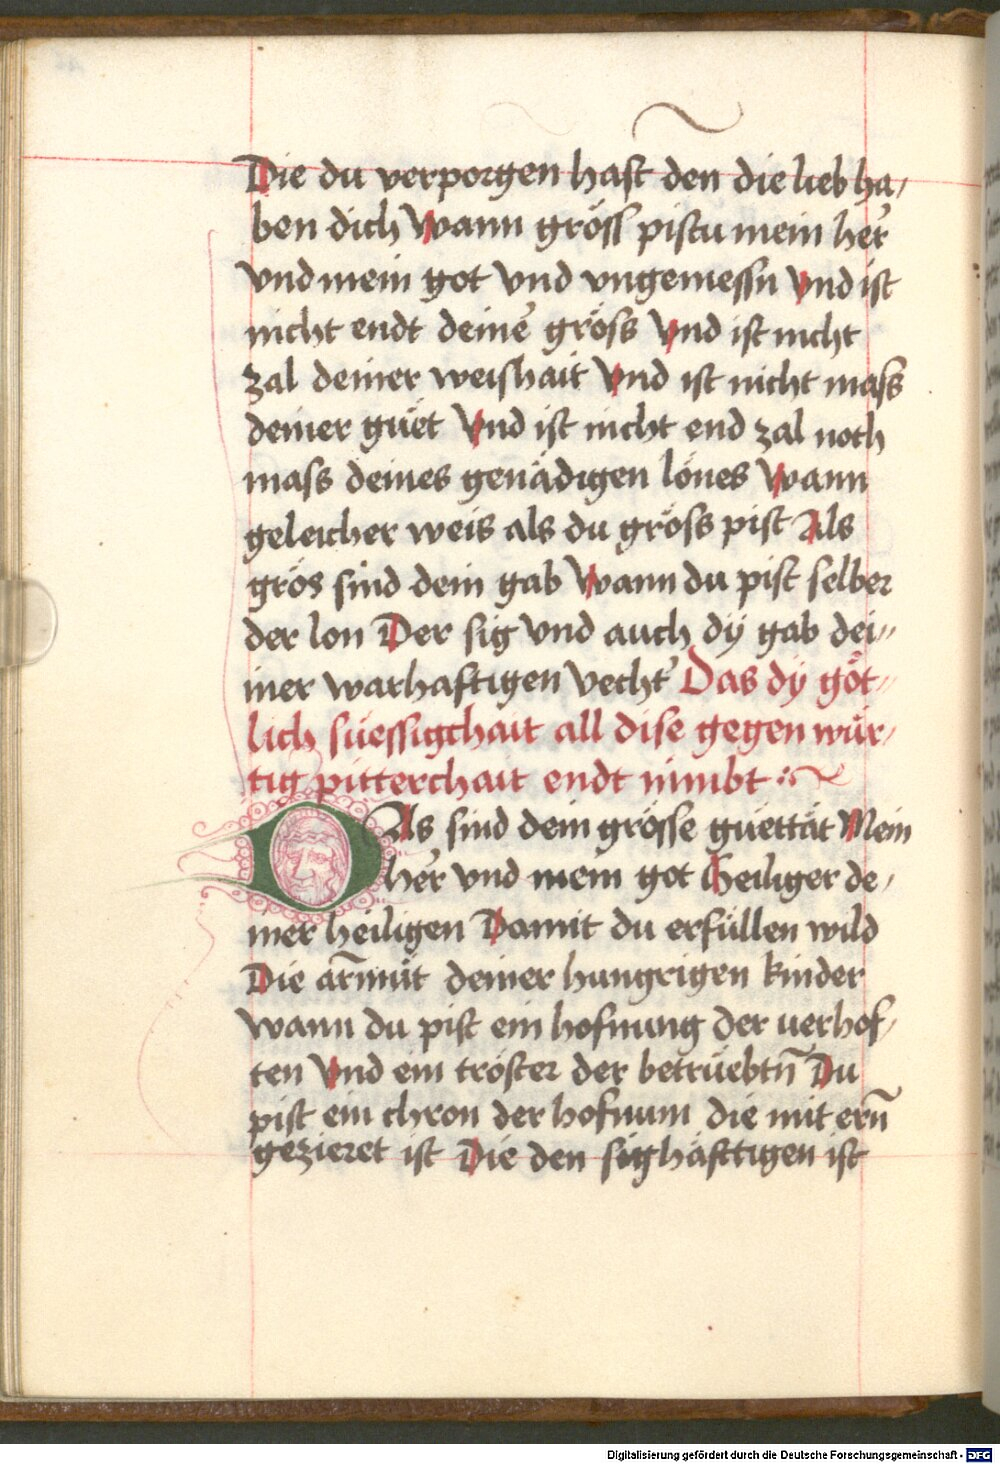 Die du verporgen hast den die lieb ha/
ben dich Wann gröss pistu mein her̓
vnd mein got vnd vngemessn̄ Vnd ist
nicht endt deine᷑ gröss Vnd ist nicht
zal deiner weishait Vnd ist nicht mass
deiner güet Vnd ist nicht end zal noch
mass deines genädigen lönes Wann
geleicher weis als du gröss pist Als
grös sind dein gab Wann du pist selber
der lon Der sig vnd auch dÿ gab dei//
ner warhaftigen vecht᷑ Das dÿ göt//
lich süessigchait all dise gegen wür/
tig pitterchait endt nimbt
DAs sind dein grösse guettät Mein
her̓ vnd mein got Heiliger de/
iner heiligen Damit du erfüllen wild
Die ar̄müt deiner hungrigen kinder
wann du pist ein hofnung der verhof/
ten Vnd ein tröster der betrüebtn̄ Du
pist ein chron der hofnum die mit ern̄
gezieret ist Die den sighäfttigen ist
Digitalisierung gefördert durch die Deutsche Forschungsgemeinschaft - DFG